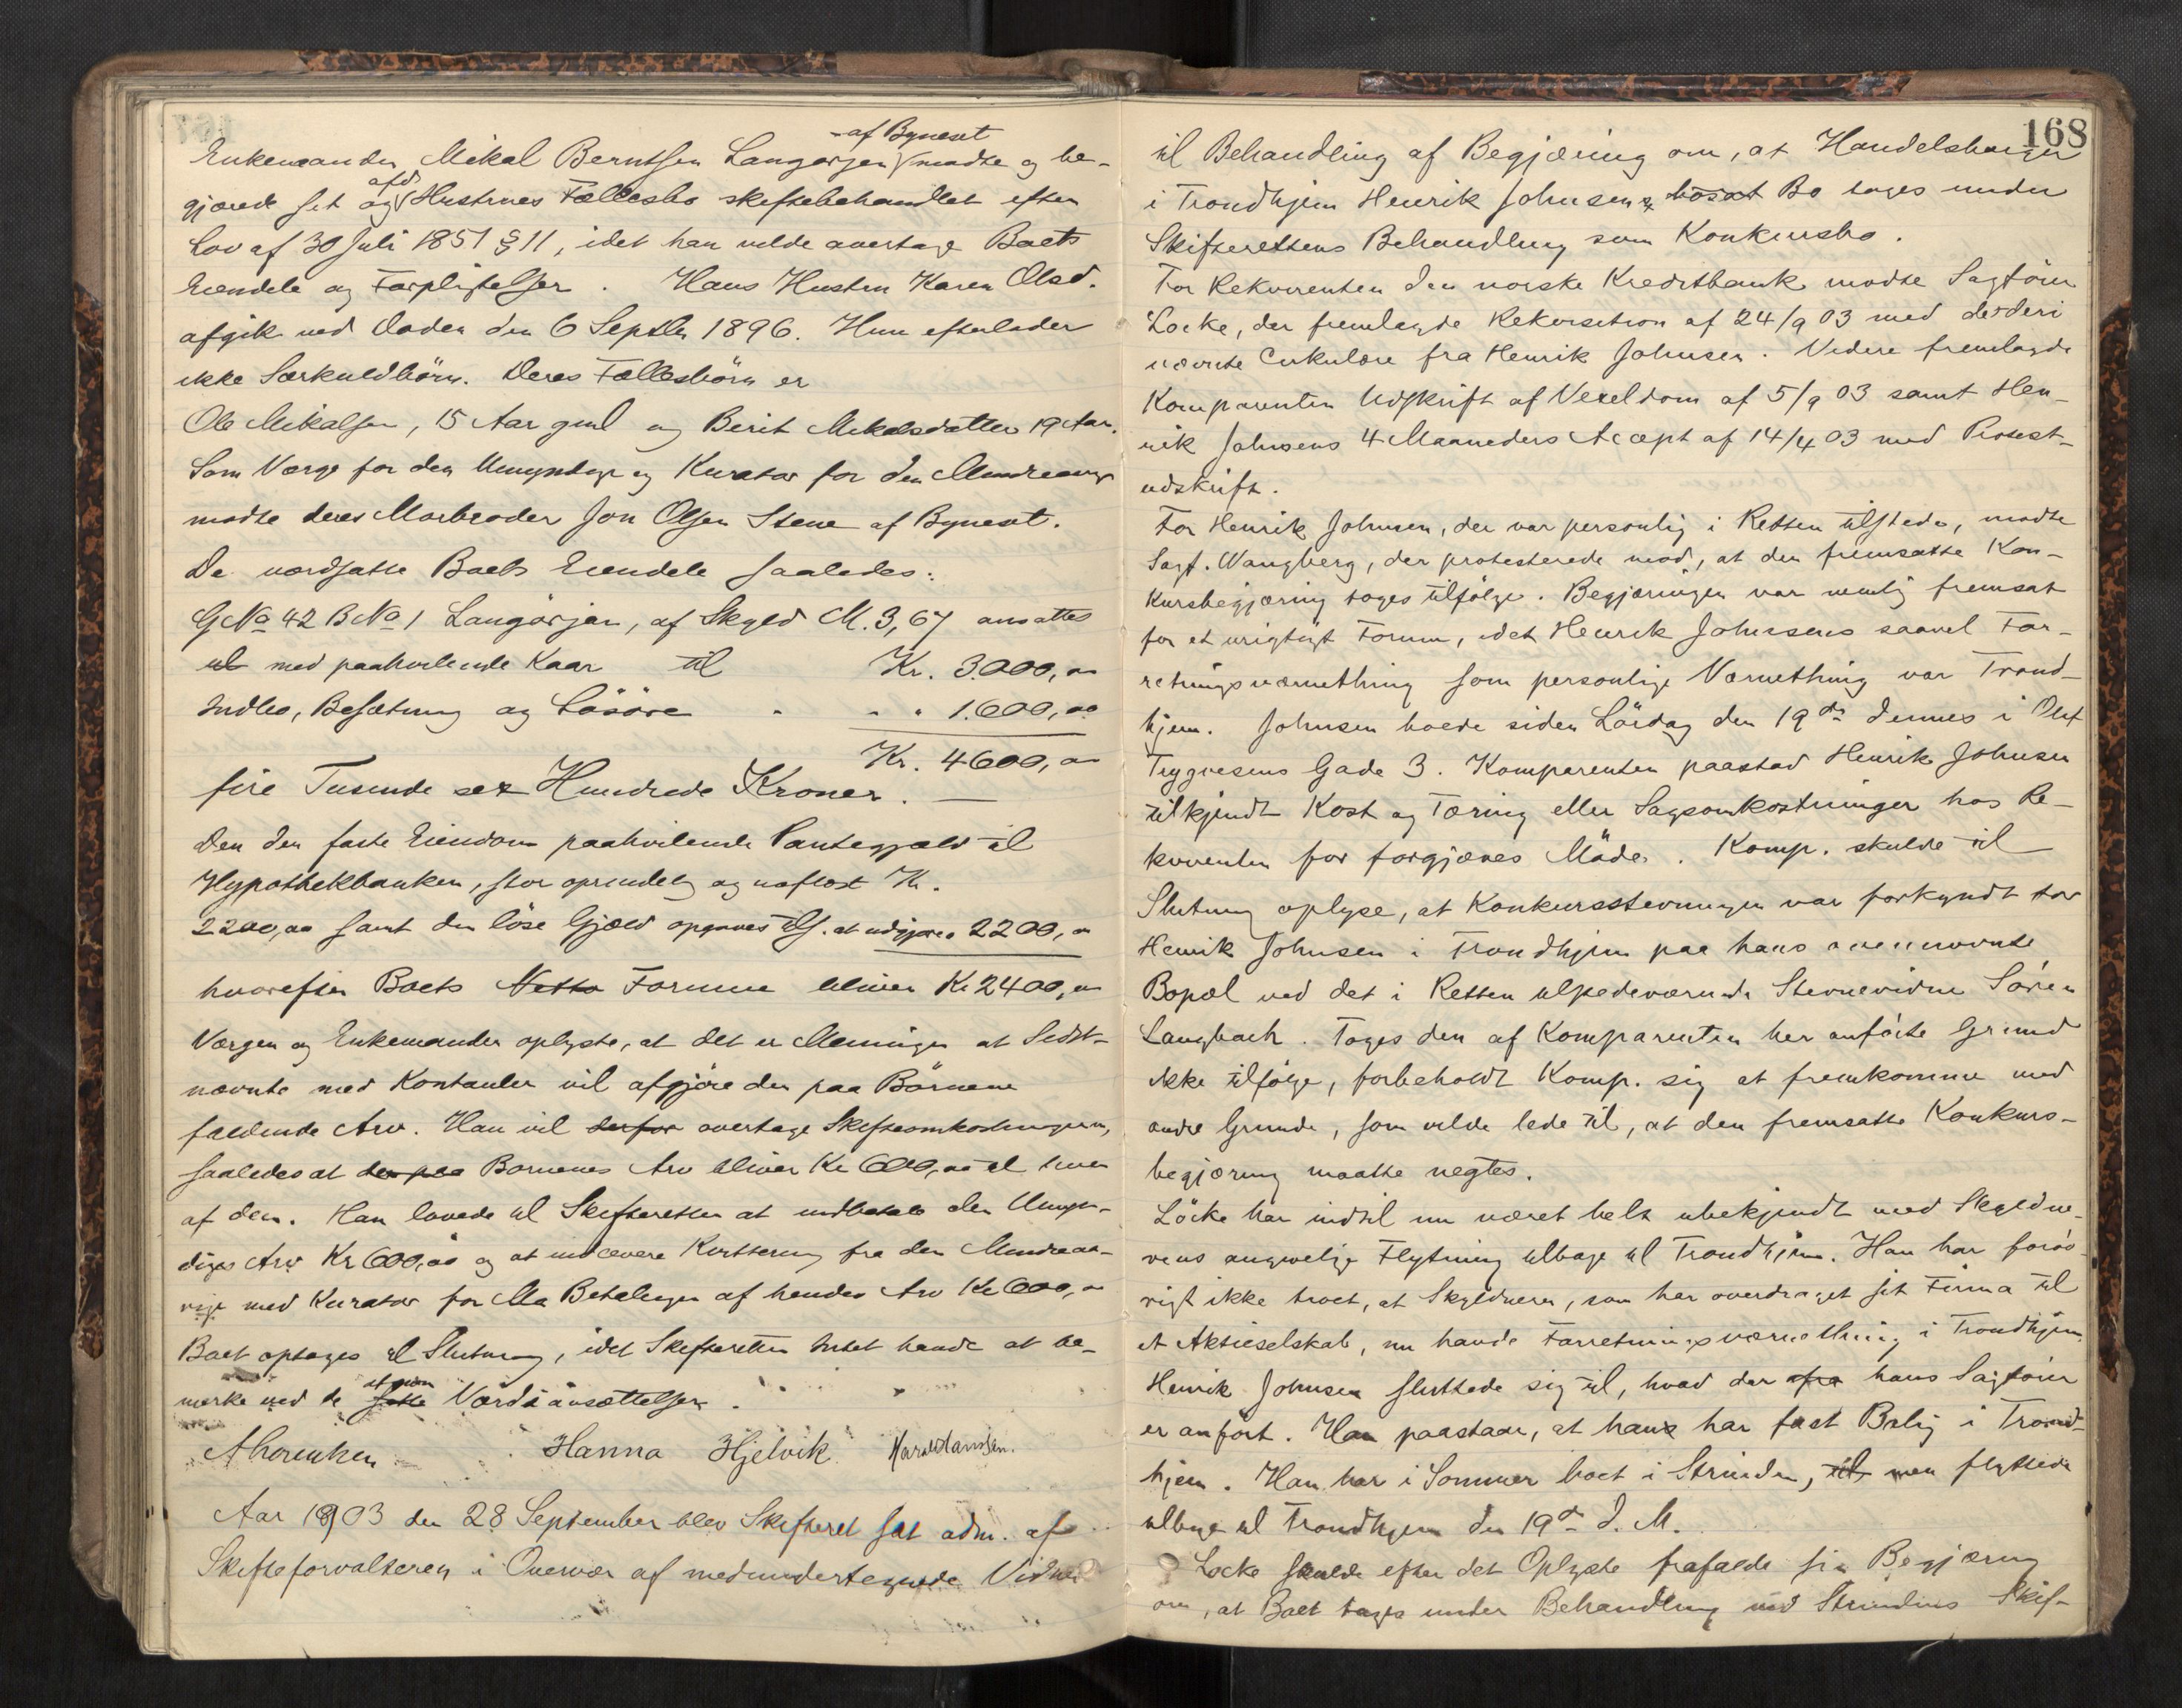 af Byneset
Enkemanden Mikal Berntsen Langørjen mødte og be-
gjærede sit og afd. Hustrues Fællesbo skiftebehandlet efter
Lov af 30 Juli 1851 § 11, idet han vilde overtage Boets
Eiendele og Forpligtelser. Hans Hustru Karen Olsd.
afgik ved Døden den 6 Septbr 1896. Hun efterlader
ikke Særkuldbörn. Deres Fællesbörn er
Ole Mikalsen, 15 Aar gml og Berit Mikalsdatter 19 Aar.
Som Værge for den Umyndige og Kurator for den Mindreaarige
mødte deres Morbroder Jon Olsen Stene af Byneset.
De værdsatte Boets Eiendele saaledes:
G No 42 B No 1 Langörjen, af Skyld M. 3,67 ansattes
til med paahvilende Kaar til Kr. 3000,00
Indbo, Besætning og Lösöre " " " 1.600,00
Kr. 4600,00
fire Tusinde sex Hundrede Kroner.
Den den faste Eiendom paahvilende Pantegjæld til
Hypothekbanken, stor oprindelig og uafløst Kr.
2200,00 samt den löse Gjæld opgaves tils. at udgjøre 2200,00
hvorefter Boets Netto Formue bliver Kr 2400,00
Værgen og Enkemanden oplyste, at det er Meningen at Sidst-
nævnte med Kontanter vil afgjöre den paa Börnene
faldende Arv. Han vil derfor overtage Skifteomkostningerne,
saaledes at den paa Børnenes Arv bliver Kr 600,00 til hver
af dem. Han lovede til Skifteretten at indbetale den Umyn-
diges Arv Kr 600,00 og at indlevere Kvittering fra den Mindreaa-
rige med Kurator for Betalingen af hendes Arv Kr 600,00
Boet optages til Slutning, idet Skifteretten Intet havde at be-
mærke ved de afgivne satte Værdiansættelser.
A Lorenken Hanna Hjelvik Harald Hanssen.
Aar 1903 den 28 September blev Skifteret sat adm. af
Skifteforvalteren i Overvær af medundertegnede Vidner
168
til Behandling af Begjæring om, at Handelsborger
i Trondhjem Henrik Johnsens bosat Bo tages under
Skifterettens Behandling som Konkursbo.
For Rekvirenten Den norske Kreditbank mødte Sagförer
Locke, der fremlagde Rekvisition af 24/9 03 med det deri
nævnte Cirkulære fra Henrik Johnsen. Videre fremlagde
Komparenten Udskrift af Vexeldom af 5/9 03 samt Hen-
rik Johnsens 4 Maaneders Accept af 14/4 03 med Protest-
udskrift.
For Henrik Johnsen, der var personlig i Retten tilstede, mødte
Sagf. Wangberg, der protesterede mod, at den fremsatte Kon-
kursbegjæring toges tilfölge. Begjæringen var nemlig fremsat
for et urigtigt Forum, idet Henrik Johnsens saavel For-
retningsværnething som personlige Værnething var Trond-
hjem. Johnsen boede siden Lördag den 19de dennes i Olaf
Trygvesens Gade 3. Komparenten paastod Henrik Johnsen
tilkjendt Kost og Tæring eller Sagsomkostninger hos Re-
kvirenten for forgjæves Möde. Komp. skulde til
Slutning oplyse, at Konkursstevningen var forkyndt for
Henrik Johnsen i Trondhjem paa hans ovennævnte
Bopæl ved det i Retten tilstedeværende Stevnevidne Sören
Langbach. Toges den af Komparenten her anförte Grund
ikke tilfölge, forbeholdt Komp. sig at fremkomme med
andre Grunde, som vilde lede til, at den fremsatte Konkurs-
begjæring maatte negtes.
Löcke har indtil nu været helt ubekjendt med Skyldne-
rens angivelige Flytning tilbage til Trondhjem. Han har forøv-
rigt ikke troet, at Skyldneren, som har overdraget sit Firma til
et Aktieselskab, nu havde Forretningsværnething i Trondhjem.
Henrik Johnsen sluttede sig til, hvad der fra hans Sagförer
er anfört. Han paastaar, at hans har fast Bolig i Trond-
hjem. Han har i Sommer boet i Strinden, til men flyttede
tilbage til Trondhjem den 19de d. M.
Locke skulde efter det Oplyste frafalde sin Begjæring
om, at Boet tages under Behandling ved Strindens Skif-